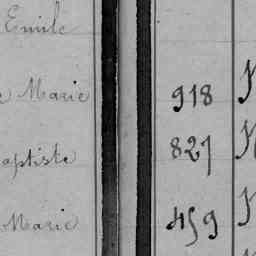 Emile
Marie 918
aptiste 827
Marie 459